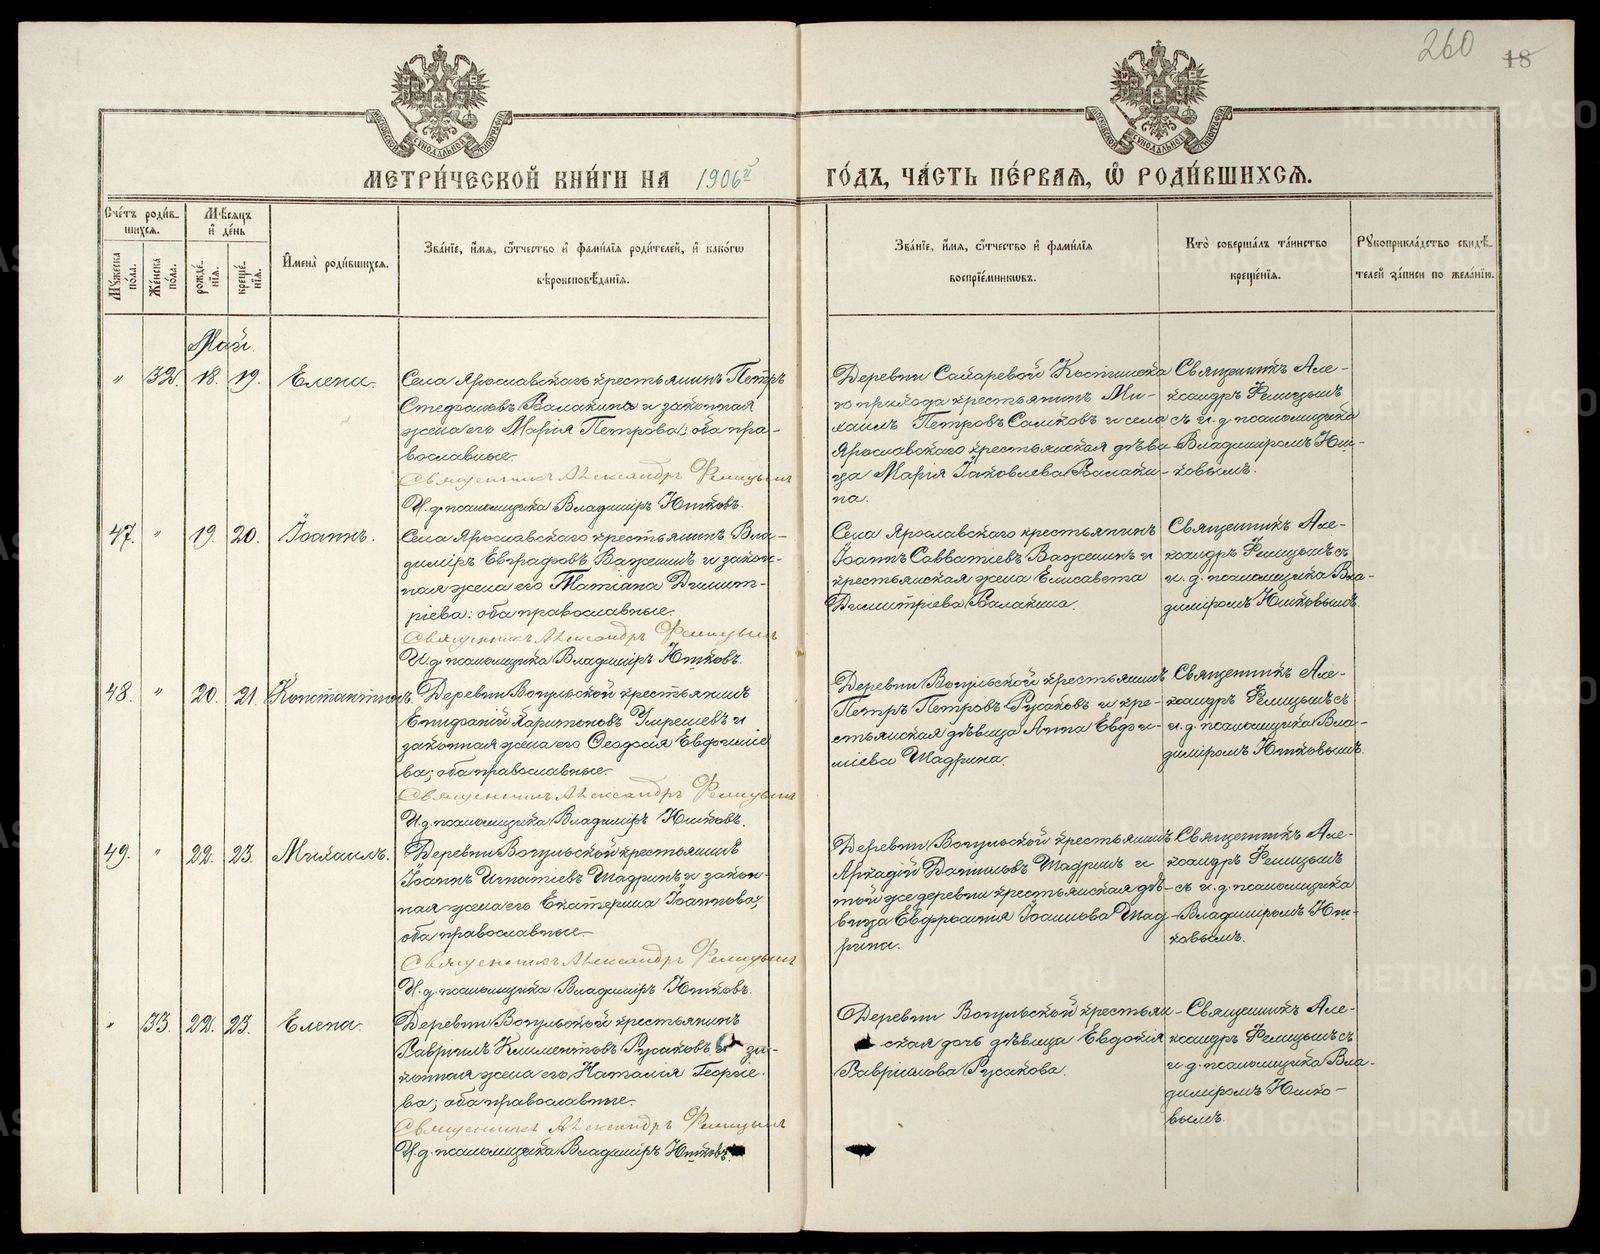 260
18
МЕТРИ́ЧЕСКОЙ КНИ́ГИ НА 1906й ГО́ДЪ, ЧА́СТЬ ПЕ́РВАЯ, Ѽ РОДИ́ВШИХСЯ.
Сче́тъ роди́в-
шихся.
Мѣ́сяцъ
и҆ де́нь
Му́жеска
по́ла.
Же́нска
по́ла.
рожде́-
нїя.
креще́-
нїя.
И҆мена̀ роди́вшихся.
Зва́нїе, и҆́мя, ѻ҆́тчество и҆ фами́лїя роди́телей, и҆ како́гѡ
вѣроисповѣ́данїя.
Зва́нїе, и҆́мя, ѻ҆́тчество и҆ фами́лїя
воспрїе́мниковъ.
Кто̀ соверша́лъ та́инство
креще́нїя.
Рукоприкла́дство свидѣ́-
телей за́писи по жела́нїю.
Май.
" 32. 18. 19. Елена.
Села Ярославскаго крестьянинъ Петръ
Стефановъ Балакинъ и законная
жена его Марія Петрова; оба пра-
вославные.
Священникъ Александръ Филицынъ
И. д. псаломщика Владиміръ Ютковъ.
Деревни
прихода крестьянинъ Ми-
хаилъ Петровъ и села
Ярославскаго крестьянская дѣви-
ца Марія Іаковлева Балаки-
на.
Священникъ Але-
ксандръ Филицынъ
съ и. д. псаломщика
Владиміромъ Ют-
ковымъ.
47. " 19. 20. Іоаннъ.
Села Ярославскаго крестьянинъ Вла-
диміръ Евграфовъ Важенинъ и закон-
ная жена его Татіана Димит-
ріева; оба православные.
Священникъ Александръ Филицынъ
И. д. псаломщика Владиміръ Ютковъ.
Села Ярославскаго крестьянинъ
Іоаннъ Савватіевъ Важенинъ и
крестьянская жена Елисавета
Димитріева Балакина.
Священникъ Але-
ксандръ Филицынъ съ
и. д. псаломщика Вла-
диміромъ Ютковымъ.
48. " 20. 21. Константинъ.
Деревни Вогульской крестьянинъ
Епифаній Харитоновъ и
законная жена его Ѳеодосія Евфиміе-
ва; оба православные.
Священникъ Александръ Филицынъ
И. д. псаломщика Владиміръ Ютковъ.
Деревни Вогульской крестьянинъ
Петръ Петровъ Русаковъ и кре-
стьянская дѣвица Анна
Шадрина.
Священникъ Але-
ксандръ Филицынъ съ
и. д. псаломщика Вла-
диміромъ Ютковымъ.
49. " 22. 23. Михаилъ.
Деревни Вогульской крестьянинъ
Іоаннъ Игнатіевъ Шадринъ и закон-
ная жена его Екатерина Іоаннова;
оба православные.
Священникъ Александръ Филицынъ
И. д. псаломщика Владиміръ Ютковъ.
Деревни Вогульской крестьянинъ
Аркадій Даниловъ Шадринъ и
той же деревни крестьянская дѣ-
вица Евфросинія Іоаннова Шад-
рина.
Священникъ Але-
ксандръ Филицынъ
съ и. д. псаломщика
Владиміромъ Ют-
ковымъ.
" 33. 22. 23. Елена.
Деревни Вогульской крестьянинъ
Гавріилъ Климентовъ Русаковъ и за-
конная жена его Наталія Георгіе-
ва; оба православные.
Священникъ Александръ Филицынъ
И. д. псаломщика Владиміръ Ютковъ.
Деревни Вогульской крестьян-
ская дочь дѣвица Евдокія
Гавріилова Русакова.
Священникъ Але-
ксандръ Филицынъ съ
и. д. псаломщика Вла-
диміромъ Ютко-
вымъ.